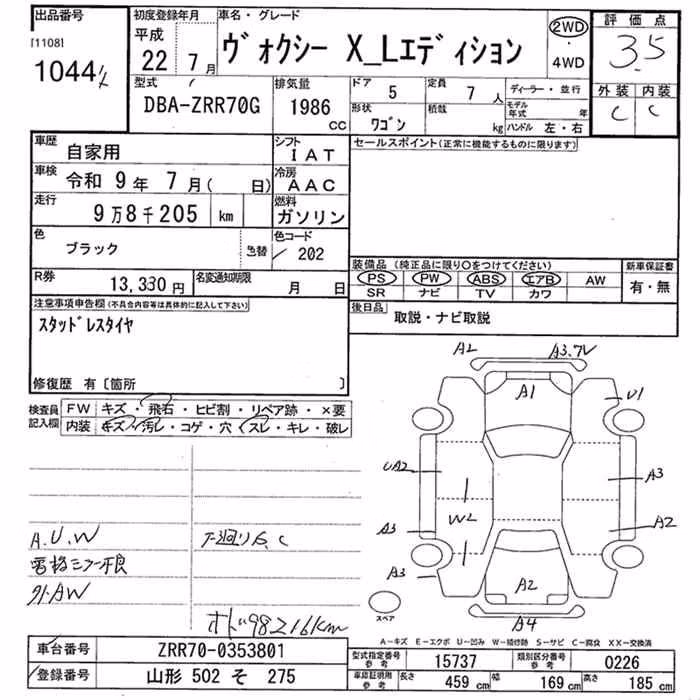 出品番号
[1108]
1044
初度登録年月
平成
22 7月
車名・グレード
ヴォクシー X_Lエディション
2WD
・
4WD
評価点
3.5
外装 内装
C C
型式
DBA-ZRR70G
排気量
1986
cc
ドア
5
定員
7人
形状
ワゴン
積載
kg
ディーラー・並行
モデル年式 年
ハンドル 左・右
車歴
自家用
シフト
IAT
車検
令和 9年 7月( 日)
冷房
AAC
走行
9万8千205 km
燃料
ガソリン
色
ブラック
色替
色コード
202
R券
13,330円
名変通知期限
月 日
セールスポイント(正常に機能するものに限ります)
装備品 (純正品に限り○をつけてください)
PS PW ABS エアB AW
SR ナビ TV カワ
新車保証書
有・無
後日品
取説・ナビ取説
注意事項申告欄(不具合内容等は具体的に記入して下さい)
スタッドレスタイヤ
修復歴 有〔箇所 〕
検査員
記入欄
FW キズ・飛石・ヒビ割・リペア跡・×要
内装 キズ・汚レ・コゲ・穴・スレ・キレ・破レ
A2
A3.ワレ
A1
U1
UA2
A3
W2
A3
A2
A3
A2
A4
スペア
A.U.W
電格ミラー不良
外AW
下廻りS.C
ホド 98216km
A-キズ E-エクボ U-凹み W-補修跡 S-サビ C-腐食 XX-交換済
車台番号
ZRR70-0353801
登録番号
山形 502 そ 275
型式指定番号
参考
15737
類別区分番号
参考
0226
車庫証明用
参考
長さ
459 cm
幅
169 cm
高さ
185 cm